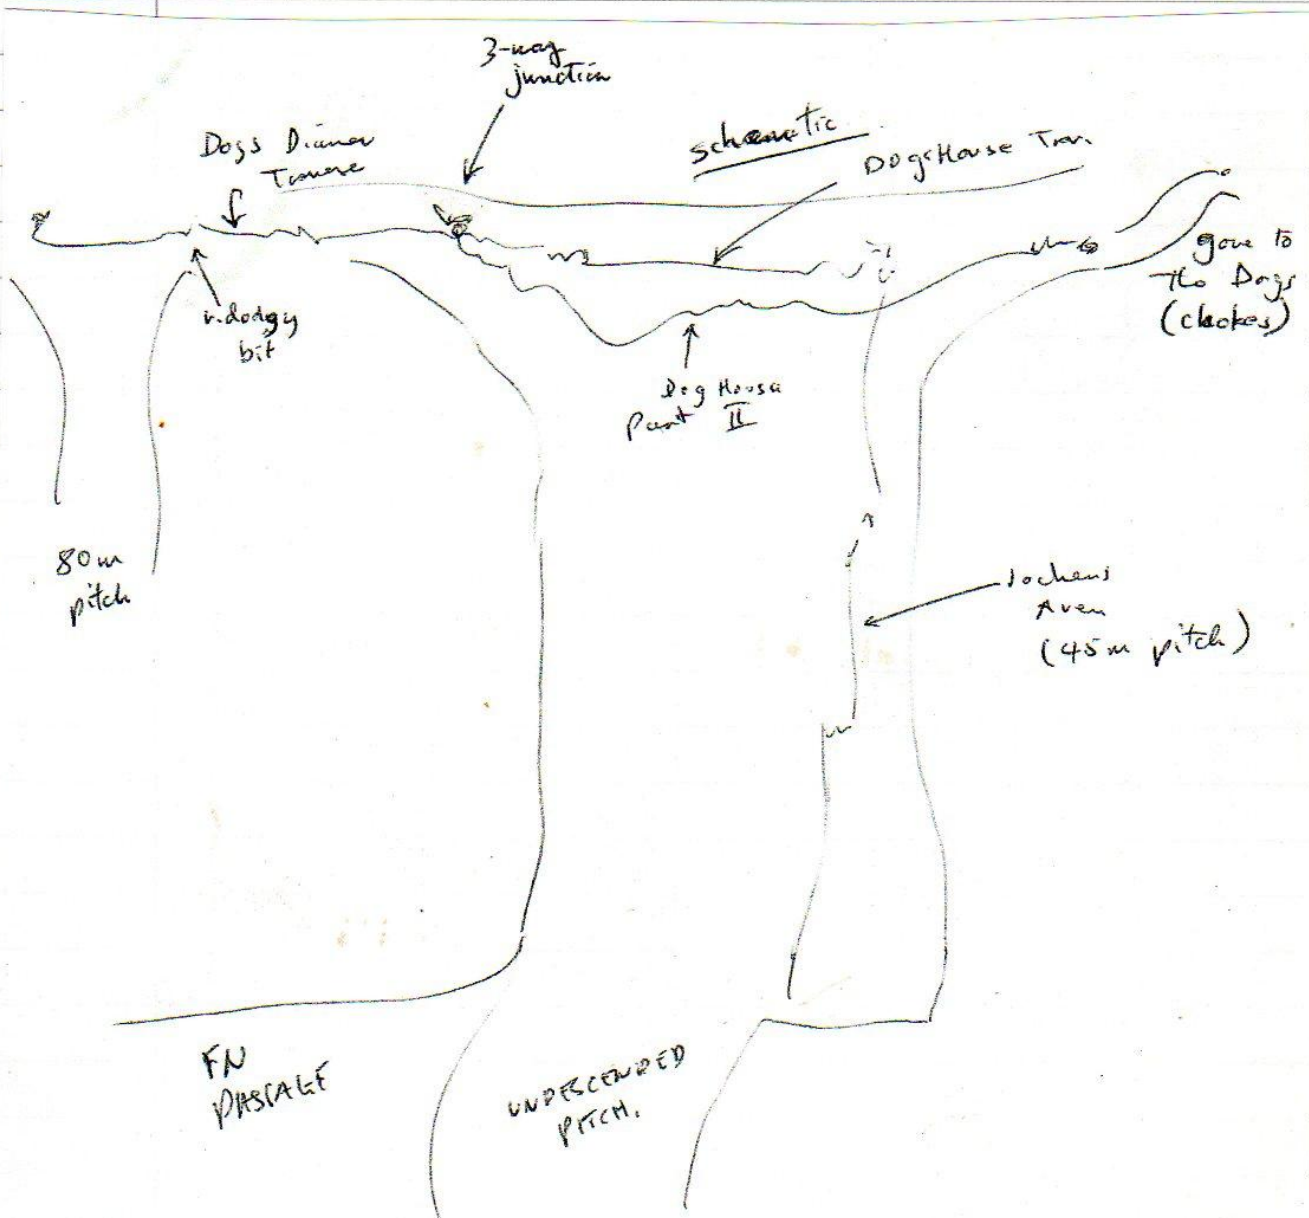 3-way
junction
schematic
Dogs Dinner
Traverse
DogsHouse Trav.
gone to
The Dogs
(chokes)
v.dodgy
bit
Dog House
Part II
80m
pitch
Jochens
Aven
(45m pitch)
FN
PASSAGE
UNDESCENDED
PITCH.